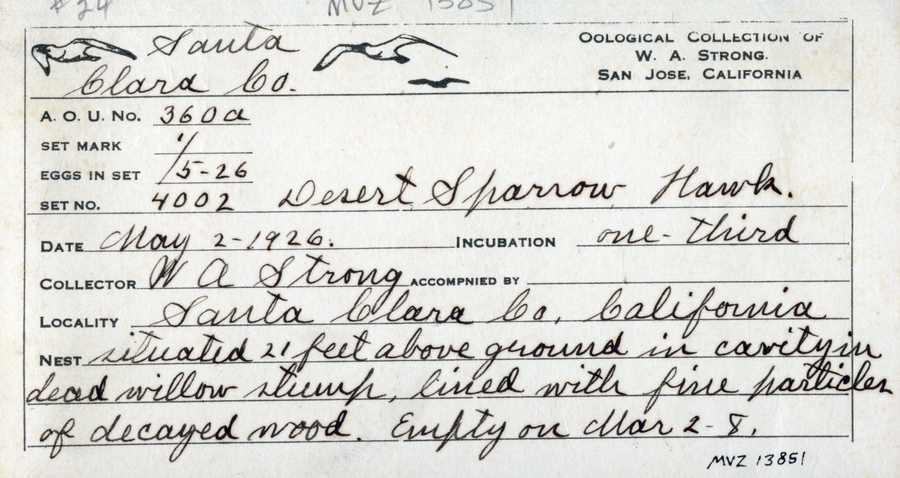 #24 MVZ 13851
Santa
Clara Co.
OOLOGICAL COLLECTION OF
W. A. STRONG.
SAN JOSE, CALIFORNIA
A. O. U. NO. 360a
SET MARK 1/
EGGS IN SET 5-26
SET NO. 4002 Desert Sparrow Hawk.
DATE May 2-1926. INCUBATION one-third
COLLECTOR W A Strong ACCOMPNIED BY
LOCALITY Santa Clara Co, California
NEST situated 21 feet above ground in cavity in
dead willow stump, lined with fine particles
of decayed wood. Empty on Mar 2-8.
MVZ 13851